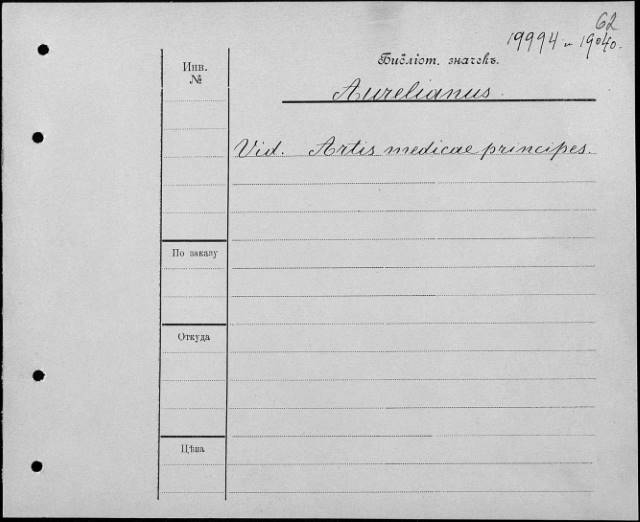 62
19994 и 19040.
Библіот. значекъ.
Инв.
№
Aurelianus.
Vid. Artis medicae principes.
По заказу
Откуда
Цѣна